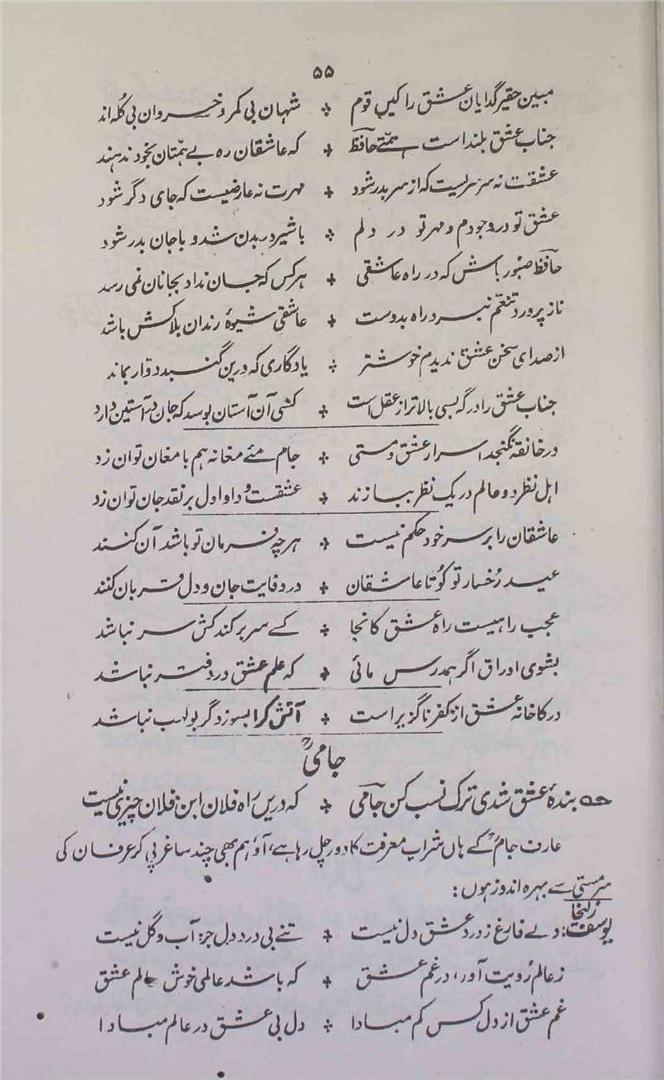 ۵۵
مبین حقیر گدایان عشق را کیں قوم ؞ شہان بی کمر و خسروان بی کُلہ اند
جناب عشق بلند است ہمّتے حافظ ؞ کہ عاشقان رہ بے ہمّتان بخود ندہند
عشقت نہ سرسریست کہ از سر بدر شود ؞ مہرت نہ عارضیست کہ جای دگر شود
عشق تو در وجودم و مہر تو در دلم ؞ باشیر در بدن شد و با جان بدر شود
حافظ صبور باش کہ در راہ عاشقی ؞ ہر کس کہ جان نداد بجانان نمی رسد
ناز پرورد تنعّم نبرد راہ بدوست ؞ عاشقی شیوۂ رندان بلاکش باشد
از صدای سخن عشق ندیدم خوشتر ؞ یادگاری کہ درین گنبد دوّار بماند
جناب عشق را درگہ بسی بالاتر از عقل است ؞ کسی آن آستان بوسد کہ جان در آستین دارد
در خانقہ نگنجد اسرار عشق و مستی ؞ جام مئے مغانہ ہم با مغان توان زد
اہل نظر دو عالم در یک نظر ببازند ؞ عشقست و داو اول بر نقد جان توان زد
عاشقان را بر سر خود حکم نیست ؞ ہرچہ فرمان تو باشد آن کنند
عید رُخسار تو کُو تا عاشقان ؞ در وفایت جان و دل قربان کنند
عجب راہیست راہ عشق کانجا ؞ کسے سر بر کند کش سر نباشد
بشوی اوراق اگر ہمدرس مائی ؞ کہ علم عشق در دفتر نباشد
در کاخانہ عشق از کفر ناگزیر است ؞ آتش کرا بسوزد گر بولہب نباشد
جامیؒ
بندۂ عشق شدی ترک نسب کن جامی ؞ کہ دریں راہ فلان ابن فلان چیزی نیست
عارف جامؒ کے ہاں شراب معرفت کا دور چل رہا ہے، آؤ ہم بھی چند ساغر پی کر عرفان کی
سرمستی سے بہرہ اندوز ہوں:
یوسف زلیخا: دلے فارغ ز درد عشق دل نیست ؞ تنے بی درد دل جز آب و گل نیست
ز عالم رُویت آور، در غم عشق ؞ کہ باشد عالمی خوش عالم عشق
غم عشق از دل کس کم مبادا ؞ دل بی عشق در عالم مبادا